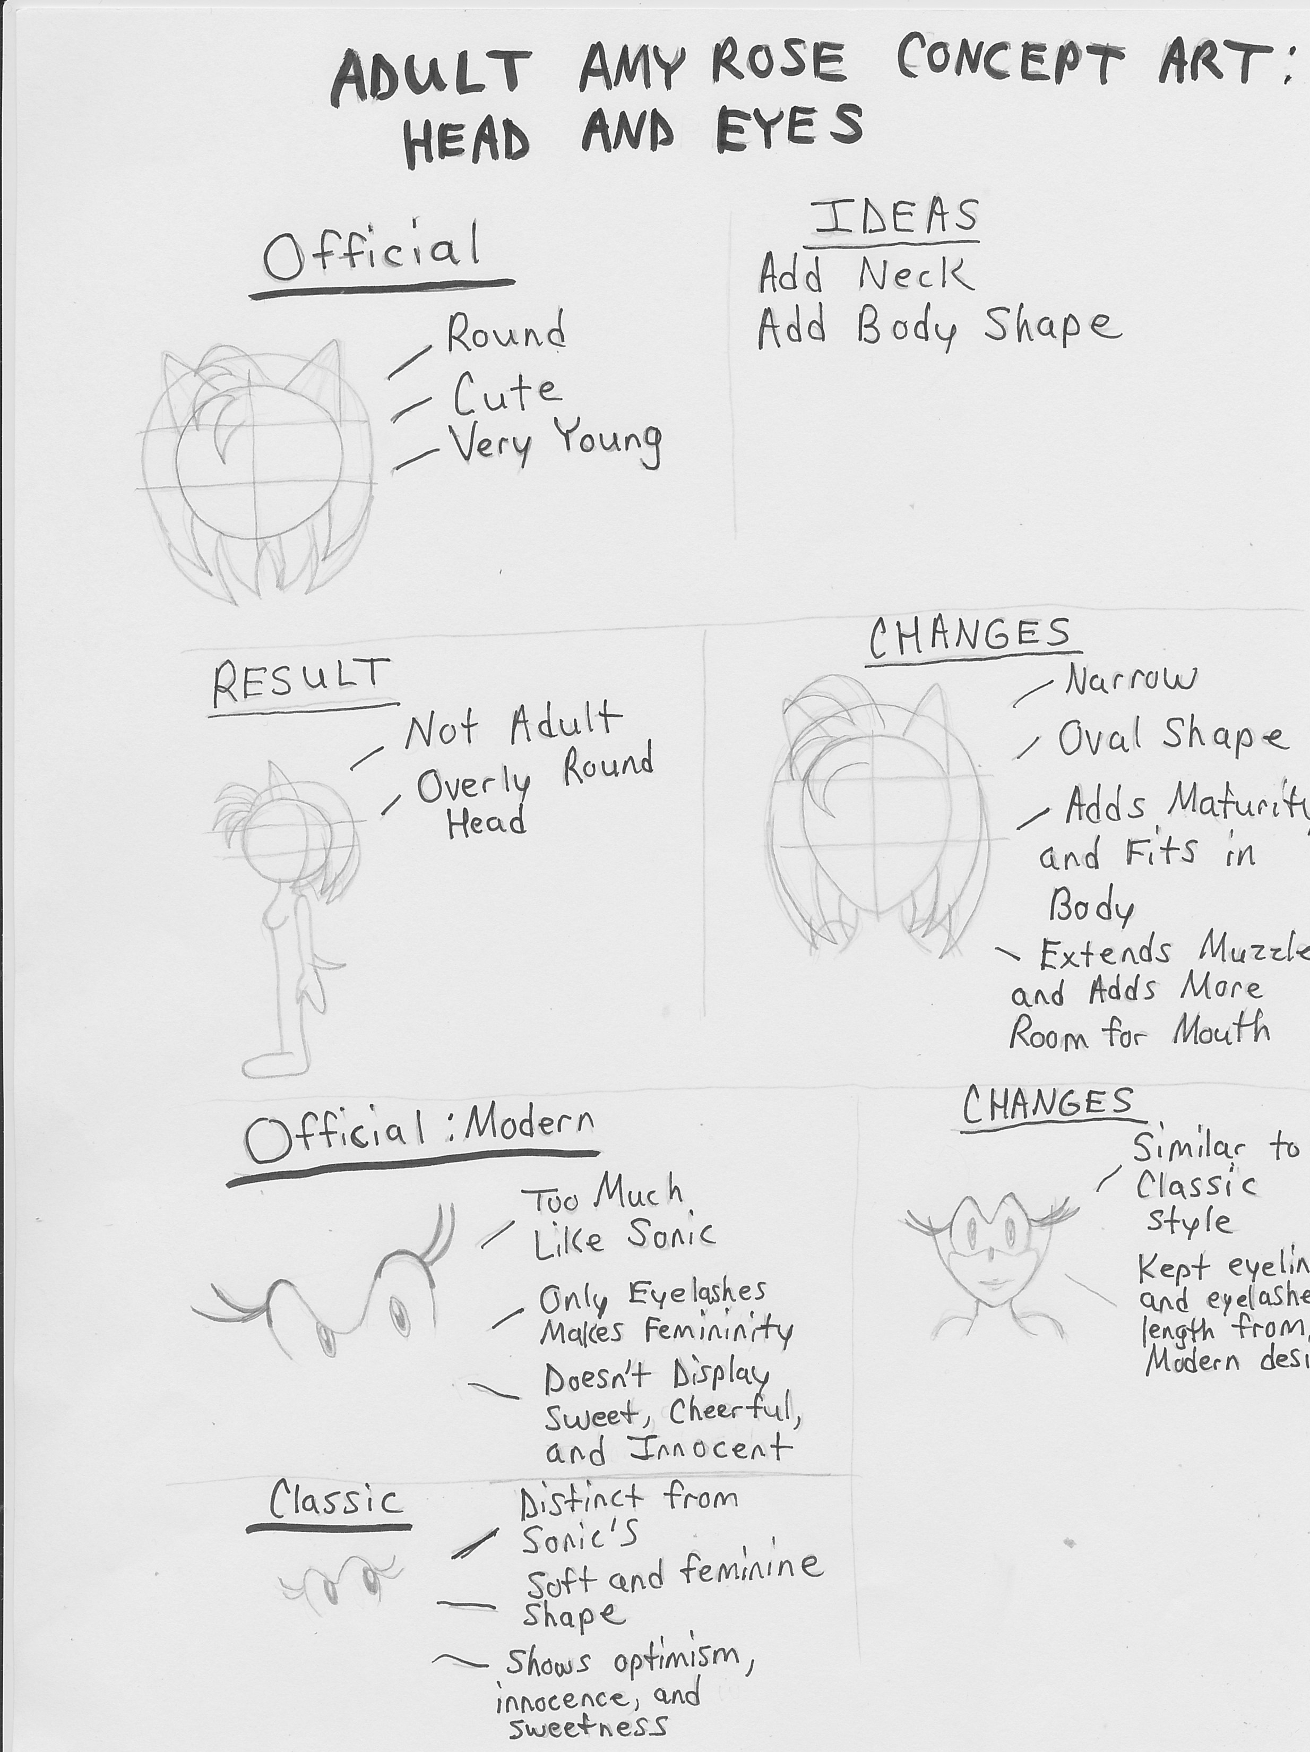 ADULT AMY ROSE CONCEPT ART:
HEAD AND EYES
Official
Round
Cute
Very Young
IDEAS
Add Neck
Add Body Shape
RESULT
Not Adult
Overly Round
Head
CHANGES
Narrow
Oval Shape
Adds Maturity
and Fits in
Body
Extends Muzzle
and Adds More
Room for Mouth
Official: Modern
Too Much
Like Sonic
Only Eyelashes
Makes Femininity
Doesn't Display
Sweet, Cheerful,
and Innocent
CHANGES
Similar to
Classic
Style
Kept eyelin
and eyelashe
length from
Modern desi
Classic
Distinct from
Sonic's
Soft and feminine
shape
Shows optimism,
innocence, and
sweetness